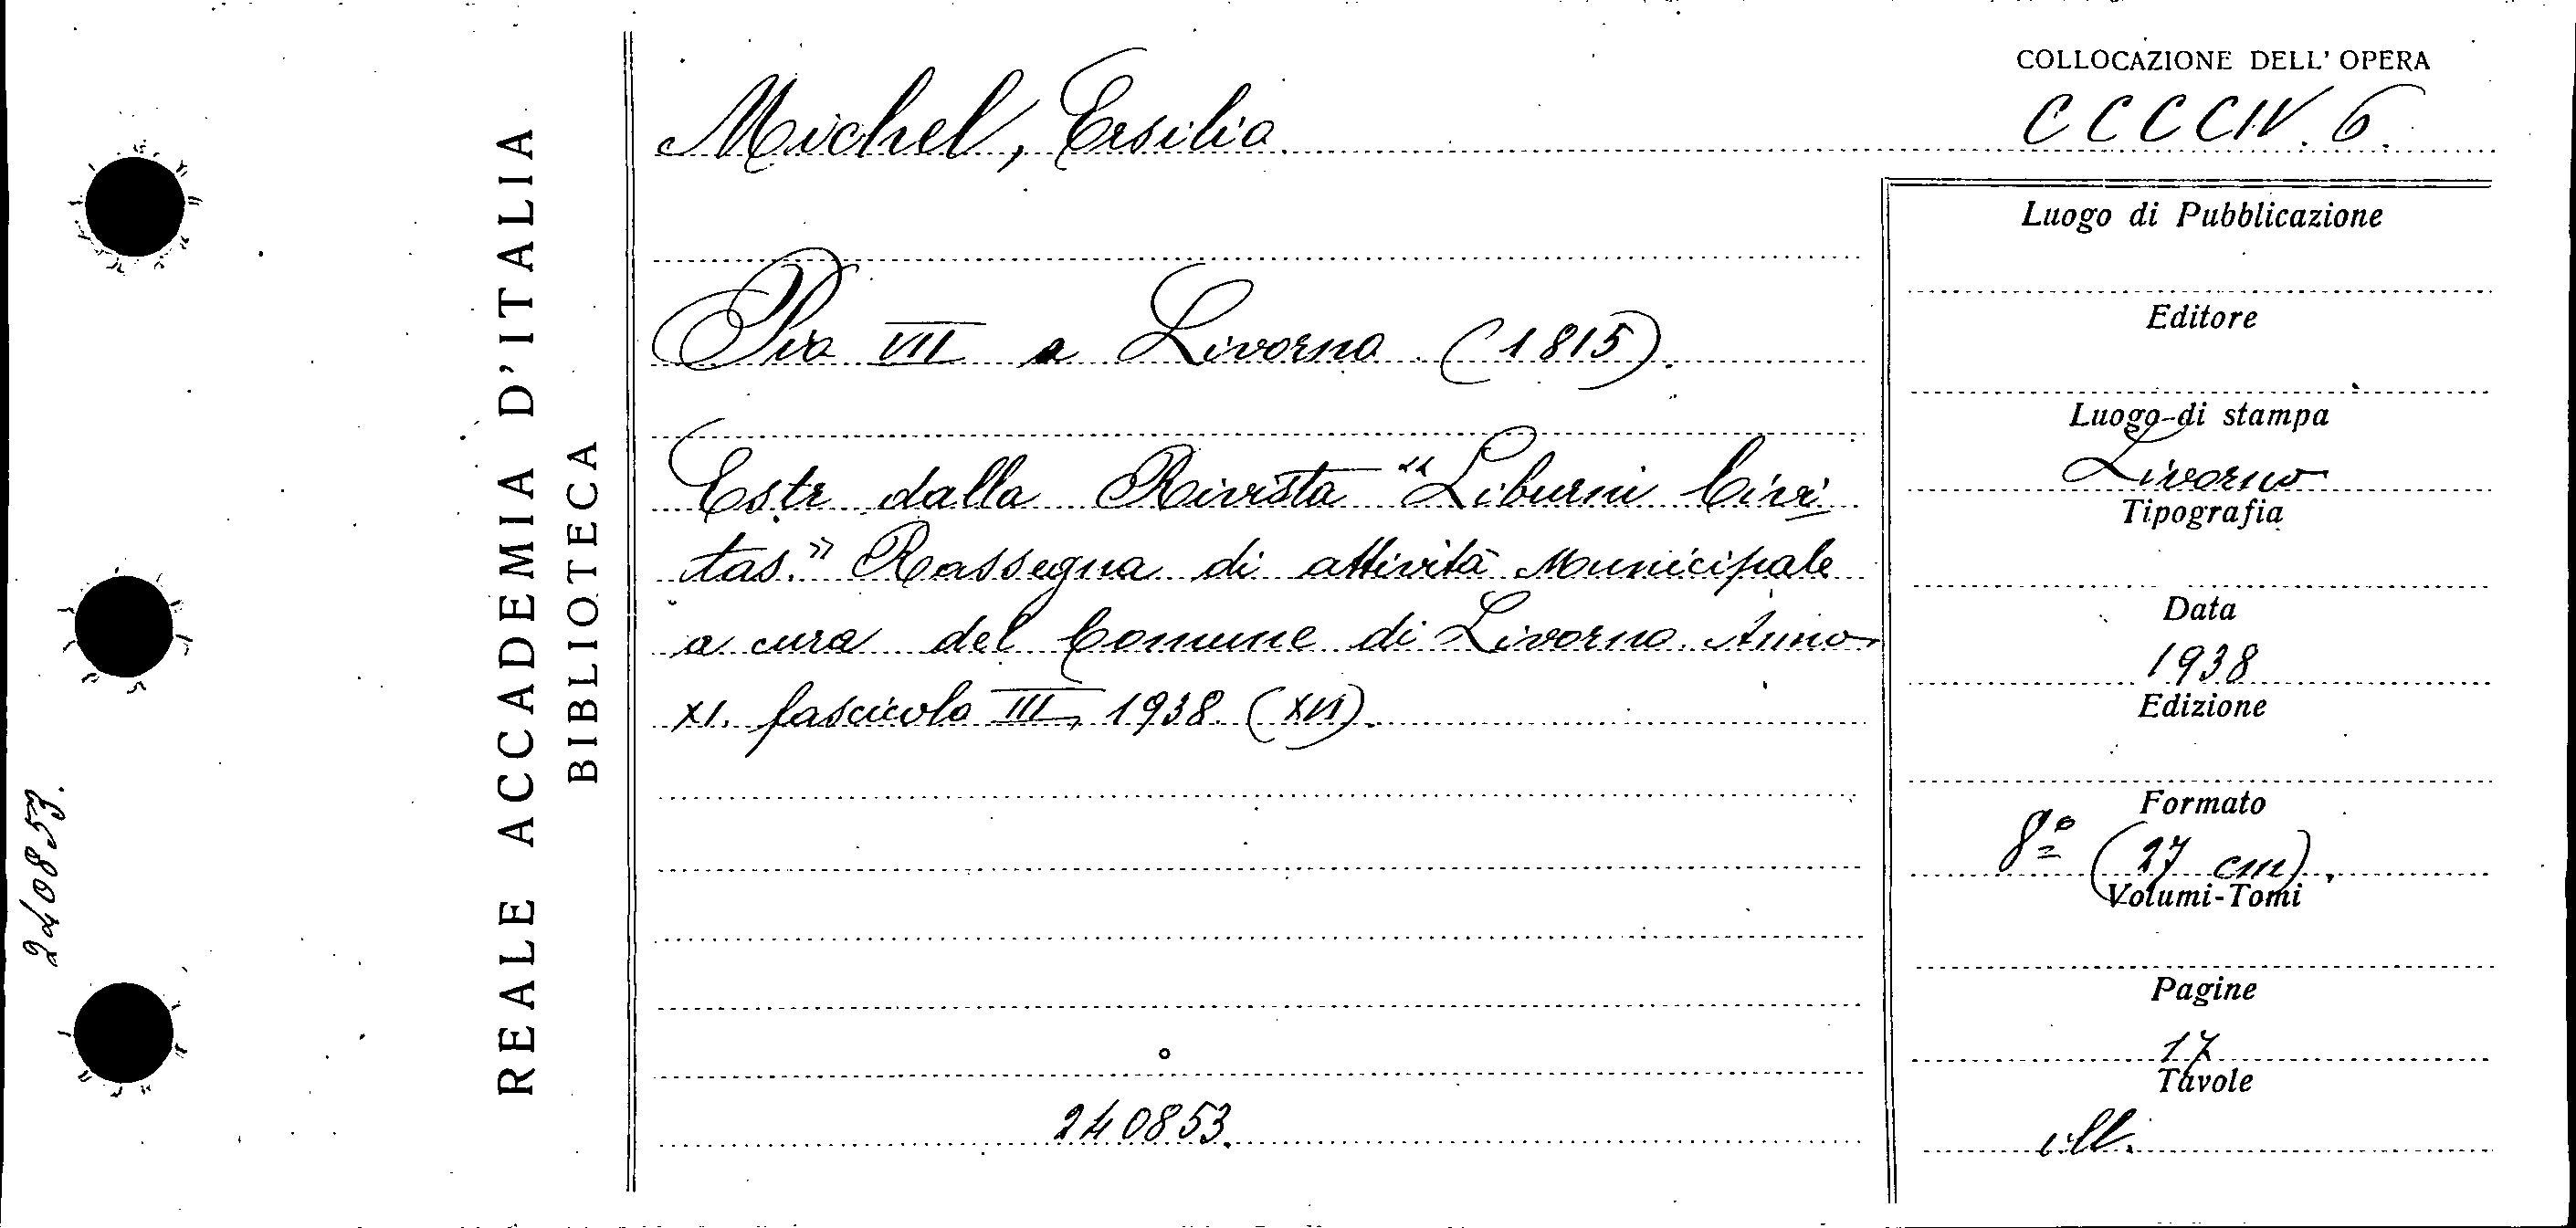 COLLOCAZIONE DELL' OPERA
Michel, Ersilio
CCCCIV. 6.
Pio VII a Livorno (1815).
Estr. dalla Rivista "Liburni Civi
tas." Rassegna di attività Municipale
a cura del Comune di Livorno. Anno
XI. fascicolo III, 1938 (XVI).
240853.
Luogo di Pubblicazione
Editore
Luogo di stampa
Livorno
Tipografia
Data
1938
Edizione
Formato
8º (27 cm).
Volumi-Tomi
Pagine
17
Tavole
ill.
REALE ACCADEMIA D'ITALIA
BIBLIOTECA
240853.